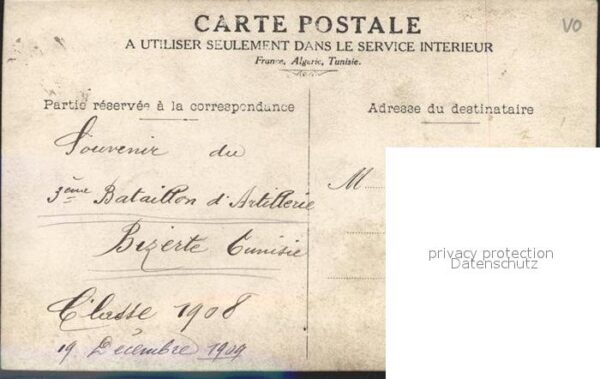 CARTE POSTALE
A UTILISER SEULEMENT DANS LE SERVICE INTERIEUR
France, Algerie, Tunisie.
VO
Partie réservée à la correspondance
Adresse du destinataire
Souvenir du
3ème Bataillon d'Artillerie
Bizerte Tunisie
Classe 1908
19 Décembre 1909
M
privacy protection
Datenschutz